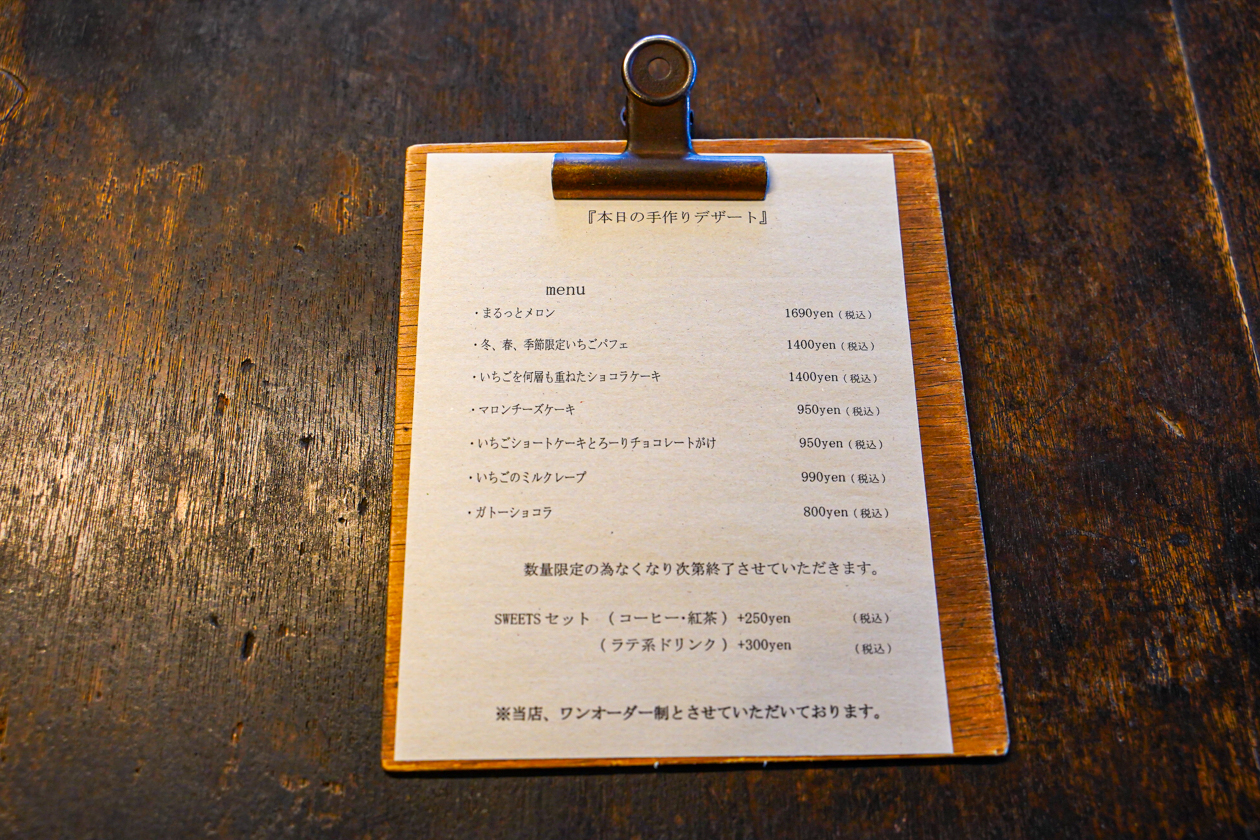 『本日の手作りデザート』
menu
・まるっとメロン 1690yen（税込）
・冬、春、季節限定いちごパフェ 1400yen（税込）
・いちごを何層も重ねたショコラケーキ 1400yen（税込）
・マロンチーズケーキ 950yen（税込）
・いちごショートケーキとろーりチョコレートがけ 950yen（税込）
・いちごのミルクレープ 990yen（税込）
・ガトーショコラ 800yen（税込）
数量限定の為なくなり次第終了させていただきます。
SWEETSセット （コーヒー・紅茶）+250yen （税込）
（ラテ系ドリンク）+300yen （税込）
※当店、ワンオーダー制とさせていただいております。